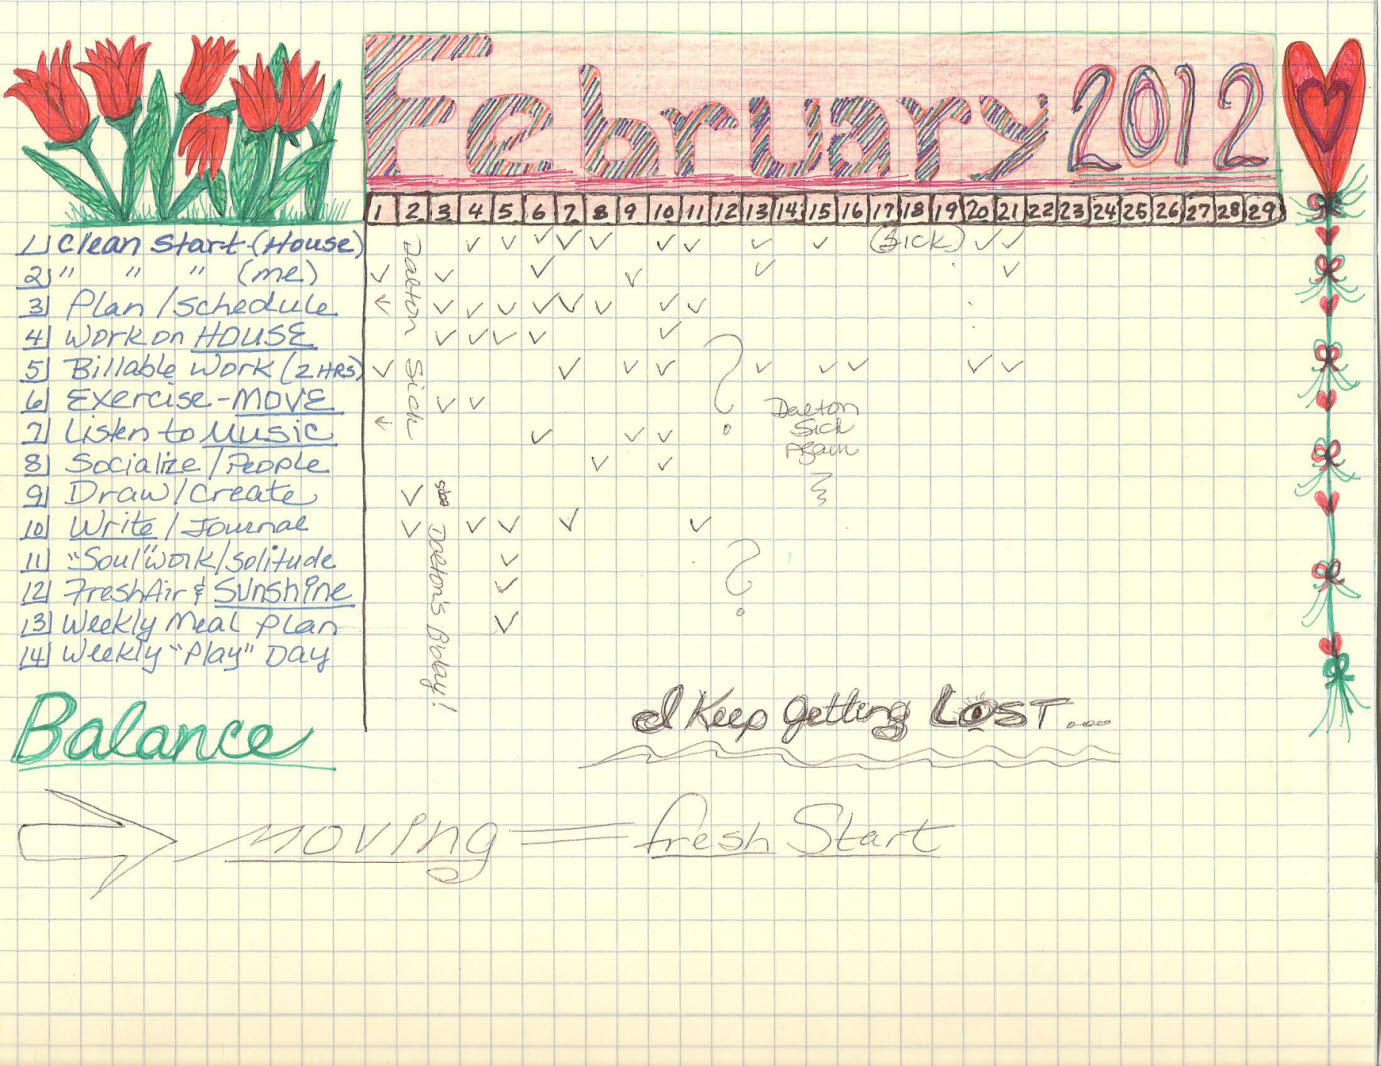 February 2012
1 2 3 4 5 6 7 8 9 10 11 12 13 14 15 16 17 18 19 20 21 22 23 24 25 26 27 28 29
1) Clean Start-(House)
2) " " " (me)
3) Plan/Schedule
4) Work on HOUSE
5) Billable Work (2 HRS)
6) Exercise-MOVE
7) Listen to Music
8) Socialize/People
9) Draw/Create
10) Write/Journal
11) "Soul"work/Solitude
12) FreshAir & SUNShine
13) Weekly Meal Plan
14) Weekly "Play" Day
Dalton Sick
Dalton's Bday!
(Sick)
?
Dalton
Sick
Again
?
Balance
I Keep getting LOST...
moving = fresh Start